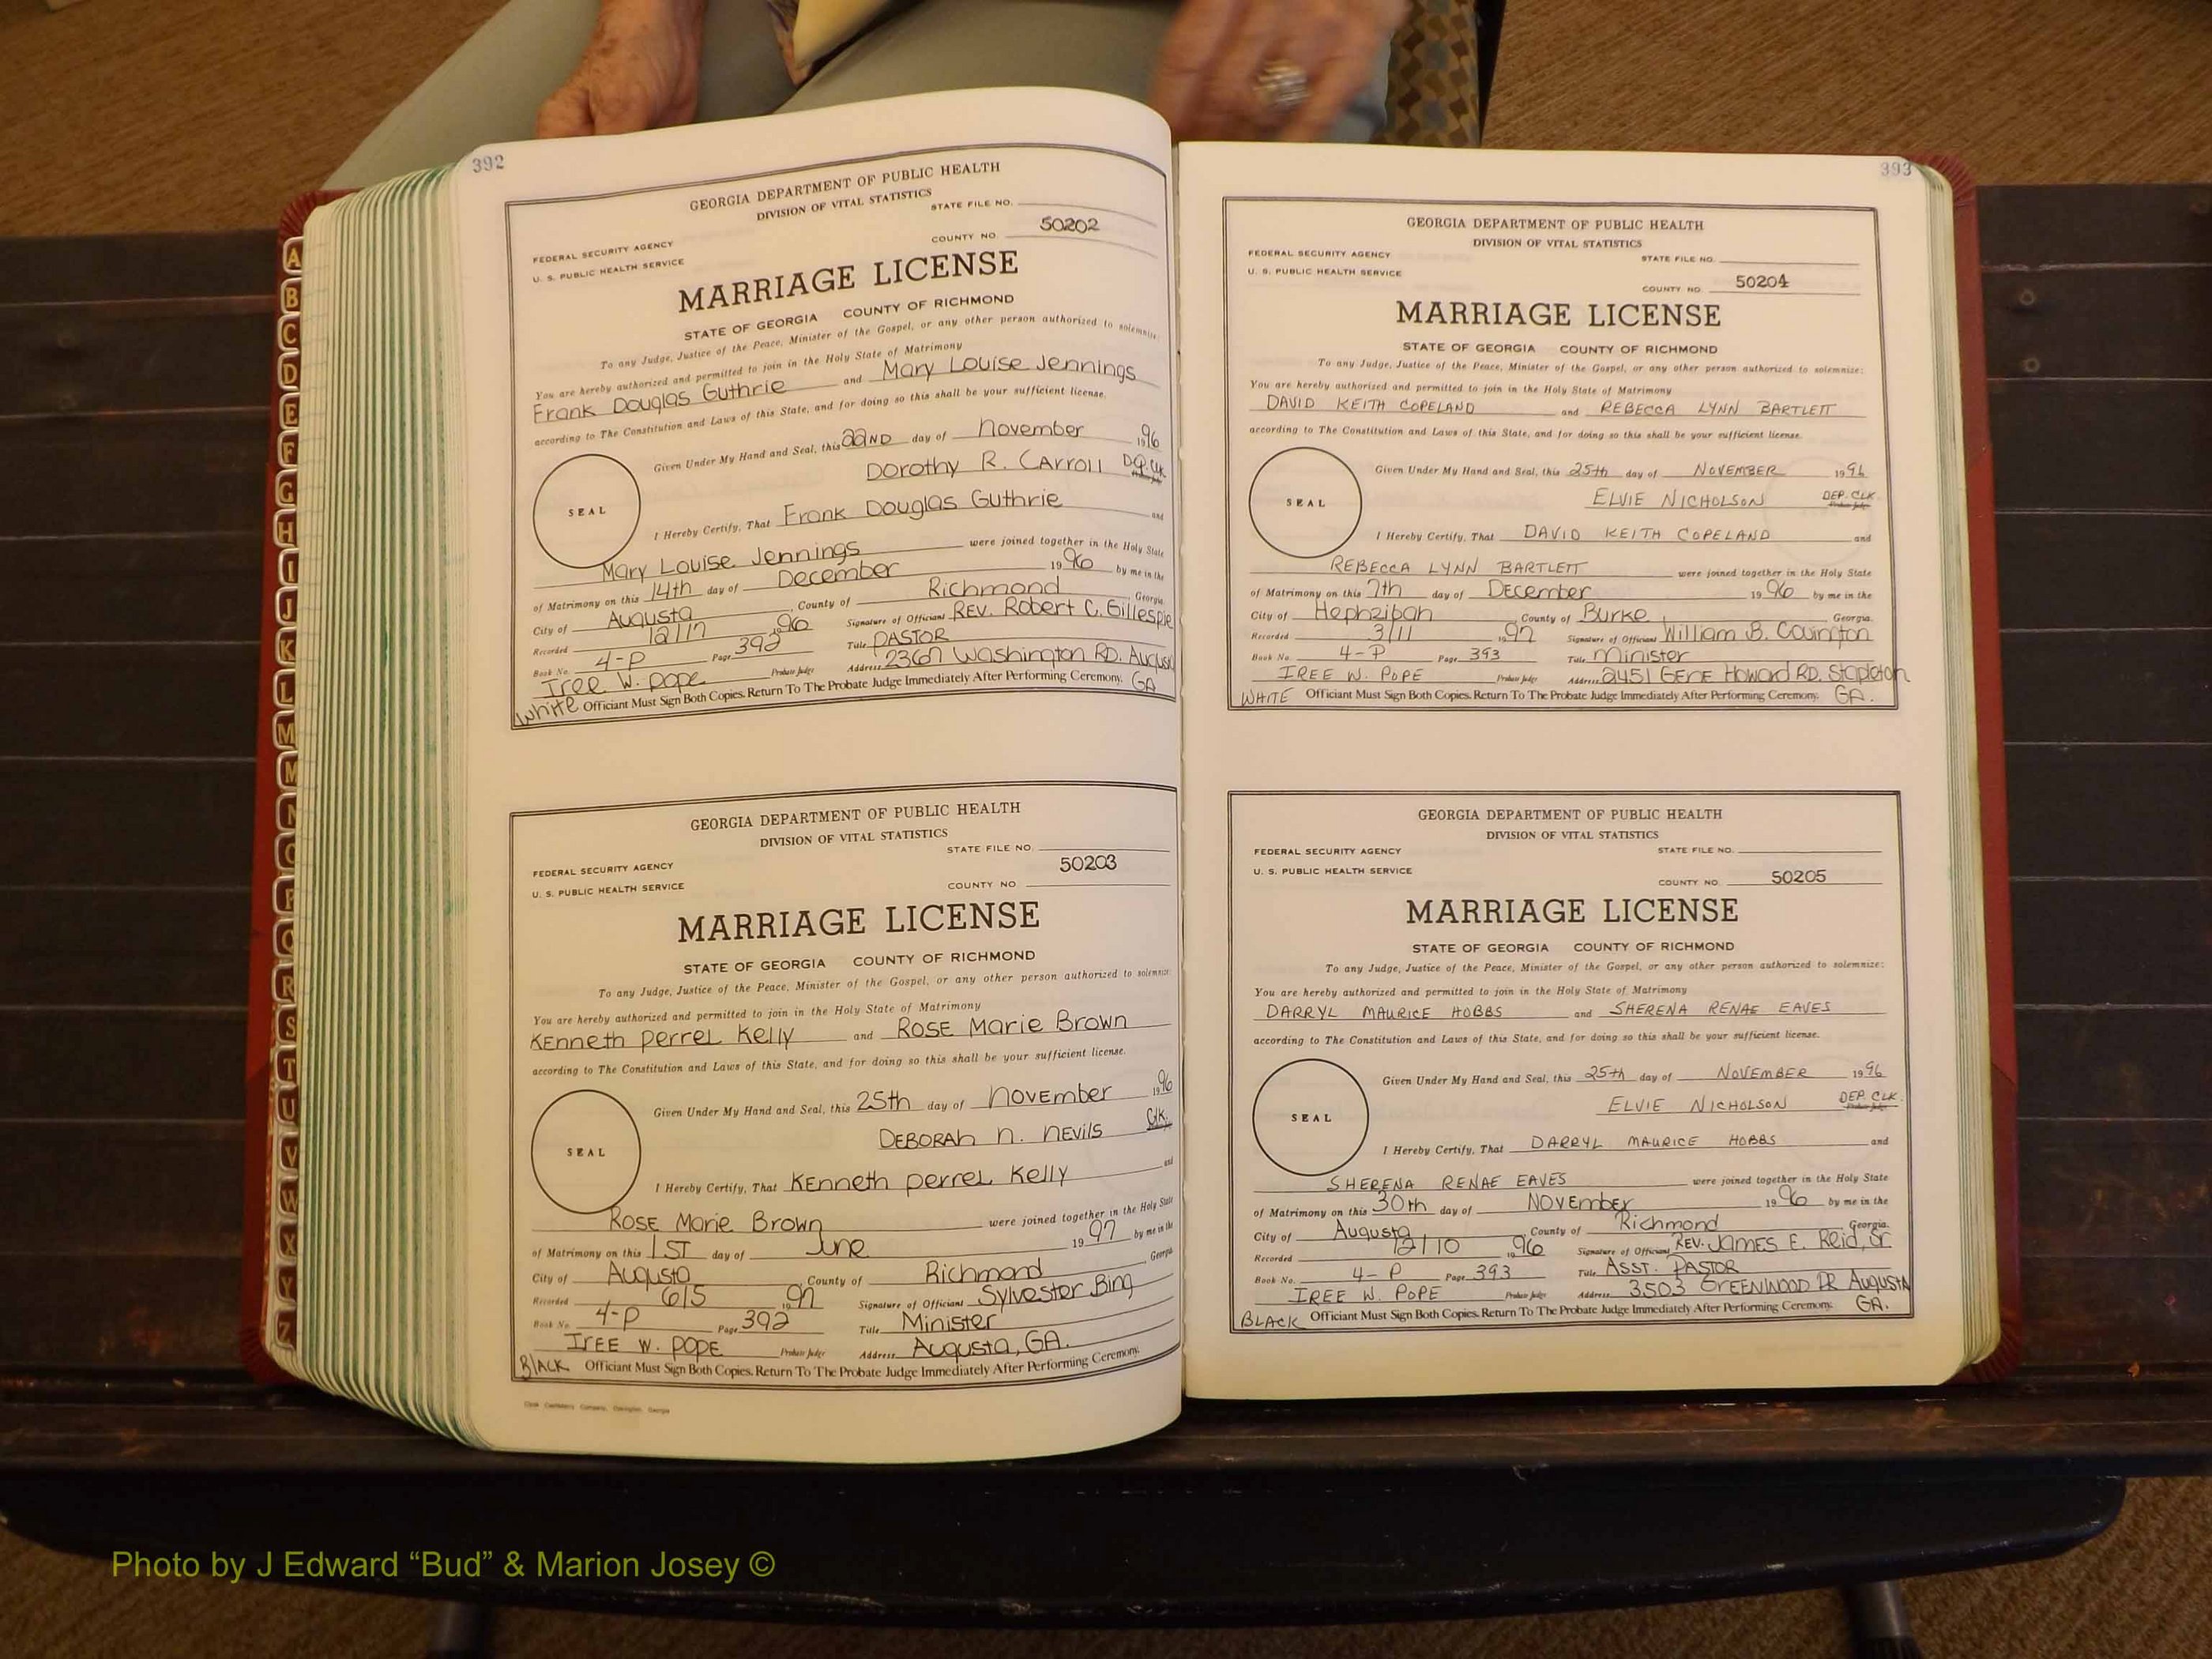 392
GEORGIA DEPARTMENT OF PUBLIC HEALTH
DIVISION OF VITAL STATISTICS
STATE FILE NO.
FEDERAL SECURITY AGENCY
COUNTY NO. 50202
U. S. PUBLIC HEALTH SERVICE
MARRIAGE LICENSE
STATE OF GEORGIA COUNTY OF RICHMOND
To any Judge, Justice of the Peace, Minister of the Gospel, or any other person authorized to solemnize:
You are hereby authorized and permitted to join in the Holy State of Matrimony
Frank Douglas Guthrie and Mary Louise Jennings
according to The Constitution and Laws of this State, and for doing so this shall be your sufficient license.
Given Under My Hand and Seal, this 22ND day of November 1996
Dorothy R. Carroll
SEAL
I Hereby Certify, That Frank Douglas Guthrie and
Mary Louise Jennings were joined together in the Holy State
of Matrimony on this 14th day of December 1996 by me in the
City of Augusta, County of Richmond Georgia.
Recorded 12/17 1996 Signature of Officiant Rev. Robert C. Gillespie
Book No. 4-P Page 392 Title PASTOR
Iree W. Pope Probate Judge Address 2367 Washington RD. Augusta
White Officiant Must Sign Both Copies. Return To The Probate Judge Immediately After Performing Ceremony. GA
GEORGIA DEPARTMENT OF PUBLIC HEALTH
DIVISION OF VITAL STATISTICS
STATE FILE NO.
FEDERAL SECURITY AGENCY
U. S. PUBLIC HEALTH SERVICE
COUNTY NO 50203
MARRIAGE LICENSE
STATE OF GEORGIA COUNTY OF RICHMOND
To any Judge, Justice of the Peace, Minister of the Gospel, or any other person authorized to solemnize:
You are hereby authorized and permitted to join in the Holy State of Matrimony
Kenneth Perrel Kelly and Rose Marie Brown
according to The Constitution and Laws of this State, and for doing so this shall be your sufficient license.
Given Under My Hand and Seal, this 25th day of November 1996
Deborah N. Nevils Clk.
SEAL
I Hereby Certify, That Kenneth Perrel Kelly and
Rose Marie Brown were joined together in the Holy State
of Matrimony on this 1ST day of June 1997 by me in the
City of Augusta, County of Richmond Georgia
Recorded 6/5 1997 Signature of Officiant Sylvester Bing
Book No. 4-P Page 392 Title Minister
Iree W. Pope Probate Judge Address Augusta, GA.
Black Officiant Must Sign Both Copies. Return To The Probate Judge Immediately After Performing Ceremony.
393
GEORGIA DEPARTMENT OF PUBLIC HEALTH
DIVISION OF VITAL STATISTICS
FEDERAL SECURITY AGENCY
STATE FILE NO.
U. S. PUBLIC HEALTH SERVICE
COUNTY NO. 50204
MARRIAGE LICENSE
STATE OF GEORGIA COUNTY OF RICHMOND
To any Judge, Justice of the Peace, Minister of the Gospel, or any other person authorized to solemnize:
You are hereby authorized and permitted to join in the Holy State of Matrimony
DAVID KEITH COPELAND and REBECCA LYNN BARTLETT
according to The Constitution and Laws of this State, and for doing so this shall be your sufficient license.
Given Under My Hand and Seal, this 25th day of NOVEMBER 1996
ELVIE NICHOLSON DEP. CLK.
SEAL
I Hereby Certify, That DAVID KEITH COPELAND and
REBECCA LYNN BARTLETT were joined together in the Holy State
of Matrimony on this 7th day of December 1996 by me in the
City of Hephzibah, County of Burke Georgia.
Recorded 3/11 1997 Signature of Officiant William B. Covington
Book No. 4-P Page 393 Title Minister
IREE W. POPE Probate Judge Address 2451 Gene Howard RD. Stapleton
WHITE Officiant Must Sign Both Copies. Return To The Probate Judge Immediately After Performing Ceremony. GA.
GEORGIA DEPARTMENT OF PUBLIC HEALTH
DIVISION OF VITAL STATISTICS
FEDERAL SECURITY AGENCY
STATE FILE NO.
U. S. PUBLIC HEALTH SERVICE
COUNTY NO. 50205
MARRIAGE LICENSE
STATE OF GEORGIA COUNTY OF RICHMOND
To any Judge, Justice of the Peace, Minister of the Gospel, or any other person authorized to solemnize:
You are hereby authorized and permitted to join in the Holy State of Matrimony
DARRYL MAURICE HOBBS and SHERENA RENAE EAVES
according to The Constitution and Laws of this State, and for doing so this shall be your sufficient license.
Given Under My Hand and Seal, this 25th day of NOVEMBER 1996
ELVIE NICHOLSON DEP. CLK.
SEAL
I Hereby Certify, That DARRYL MAURICE HOBBS and
SHERENA RENAE EAVES were joined together in the Holy State
of Matrimony on this 30th day of November 1996 by me in the
City of Augusta, County of Richmond Georgia.
Recorded 12/10 1996 Signature of Officiant Rev. James E. Reid, Sr.
Book No. 4-P Page 393 Title Asst. Pastor
IREE W. POPE Probate Judge Address 3503 Greenwood DR Augusta
BLACK Officiant Must Sign Both Copies. Return To The Probate Judge Immediately After Performing Ceremony. GA.
A
B
C
D
E
F
G
H
I
J
K
L
M
M
N
O
P
Q
R
S
T
U
V
W
X
Y
Z
Photo by J Edward “Bud” & Marion Josey ©